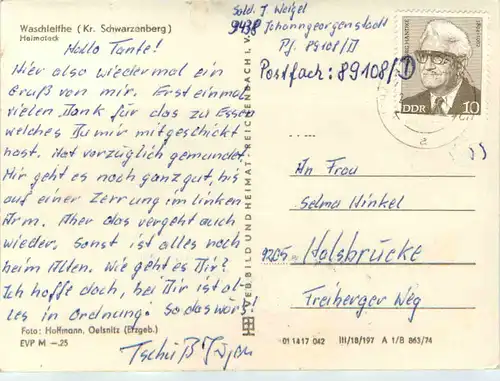 Waschleithe (Kr. Schwarzenberg)
Heimateck
Hallo Tante!
Hier also wiedermal ein
Gruß von mir. Erst einmal
vielen Dank für das zu Essen
welches Du mir mitgeschickt
hast. Hat vorzüglich gemundet.
Mir geht es noch ganz gut, bis
auf einer Zerrung im linken
Arm. Aber das vergeht auch
wieder. Sonst ist alles noch
beim Alten. Wie geht es Dir?
Ich hoffe doch, bei Dir ist al-
les in Ordnung. So das wärs!
Foto: Hoffmann, Oelsnitz (Erzgeb.)
EVP M —.25
Tschüß
VEB BILD UND HEIMAT · REICHENBACH I. V.
Sold. J. Weigel
9438 Johanngeorgenstadt
Pf. 89108/D
Postfach: 89108/D
DDR 10
An Frau
Selma Hinkel
9205 Halsbrücke
Freiberger Weg
01 14 17 042 III/18/197 A 1/B 863/74